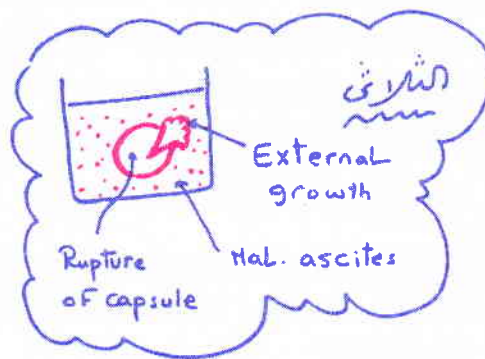 الثلاثي
External
growth
Mal. ascites
Rupture
of capsule